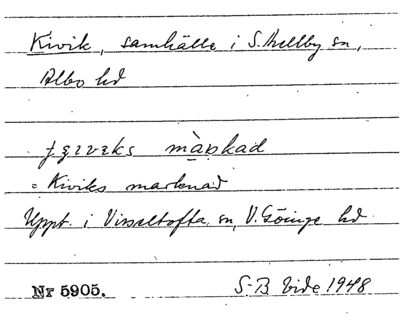 Kivik, samhälle i S. Mellby sn,
Albo hd
màrkad
= Kiviks marknad
Uppt. i Visseltofta sn, V. Göinge hd
Nr 5905. S-B Vide 1948